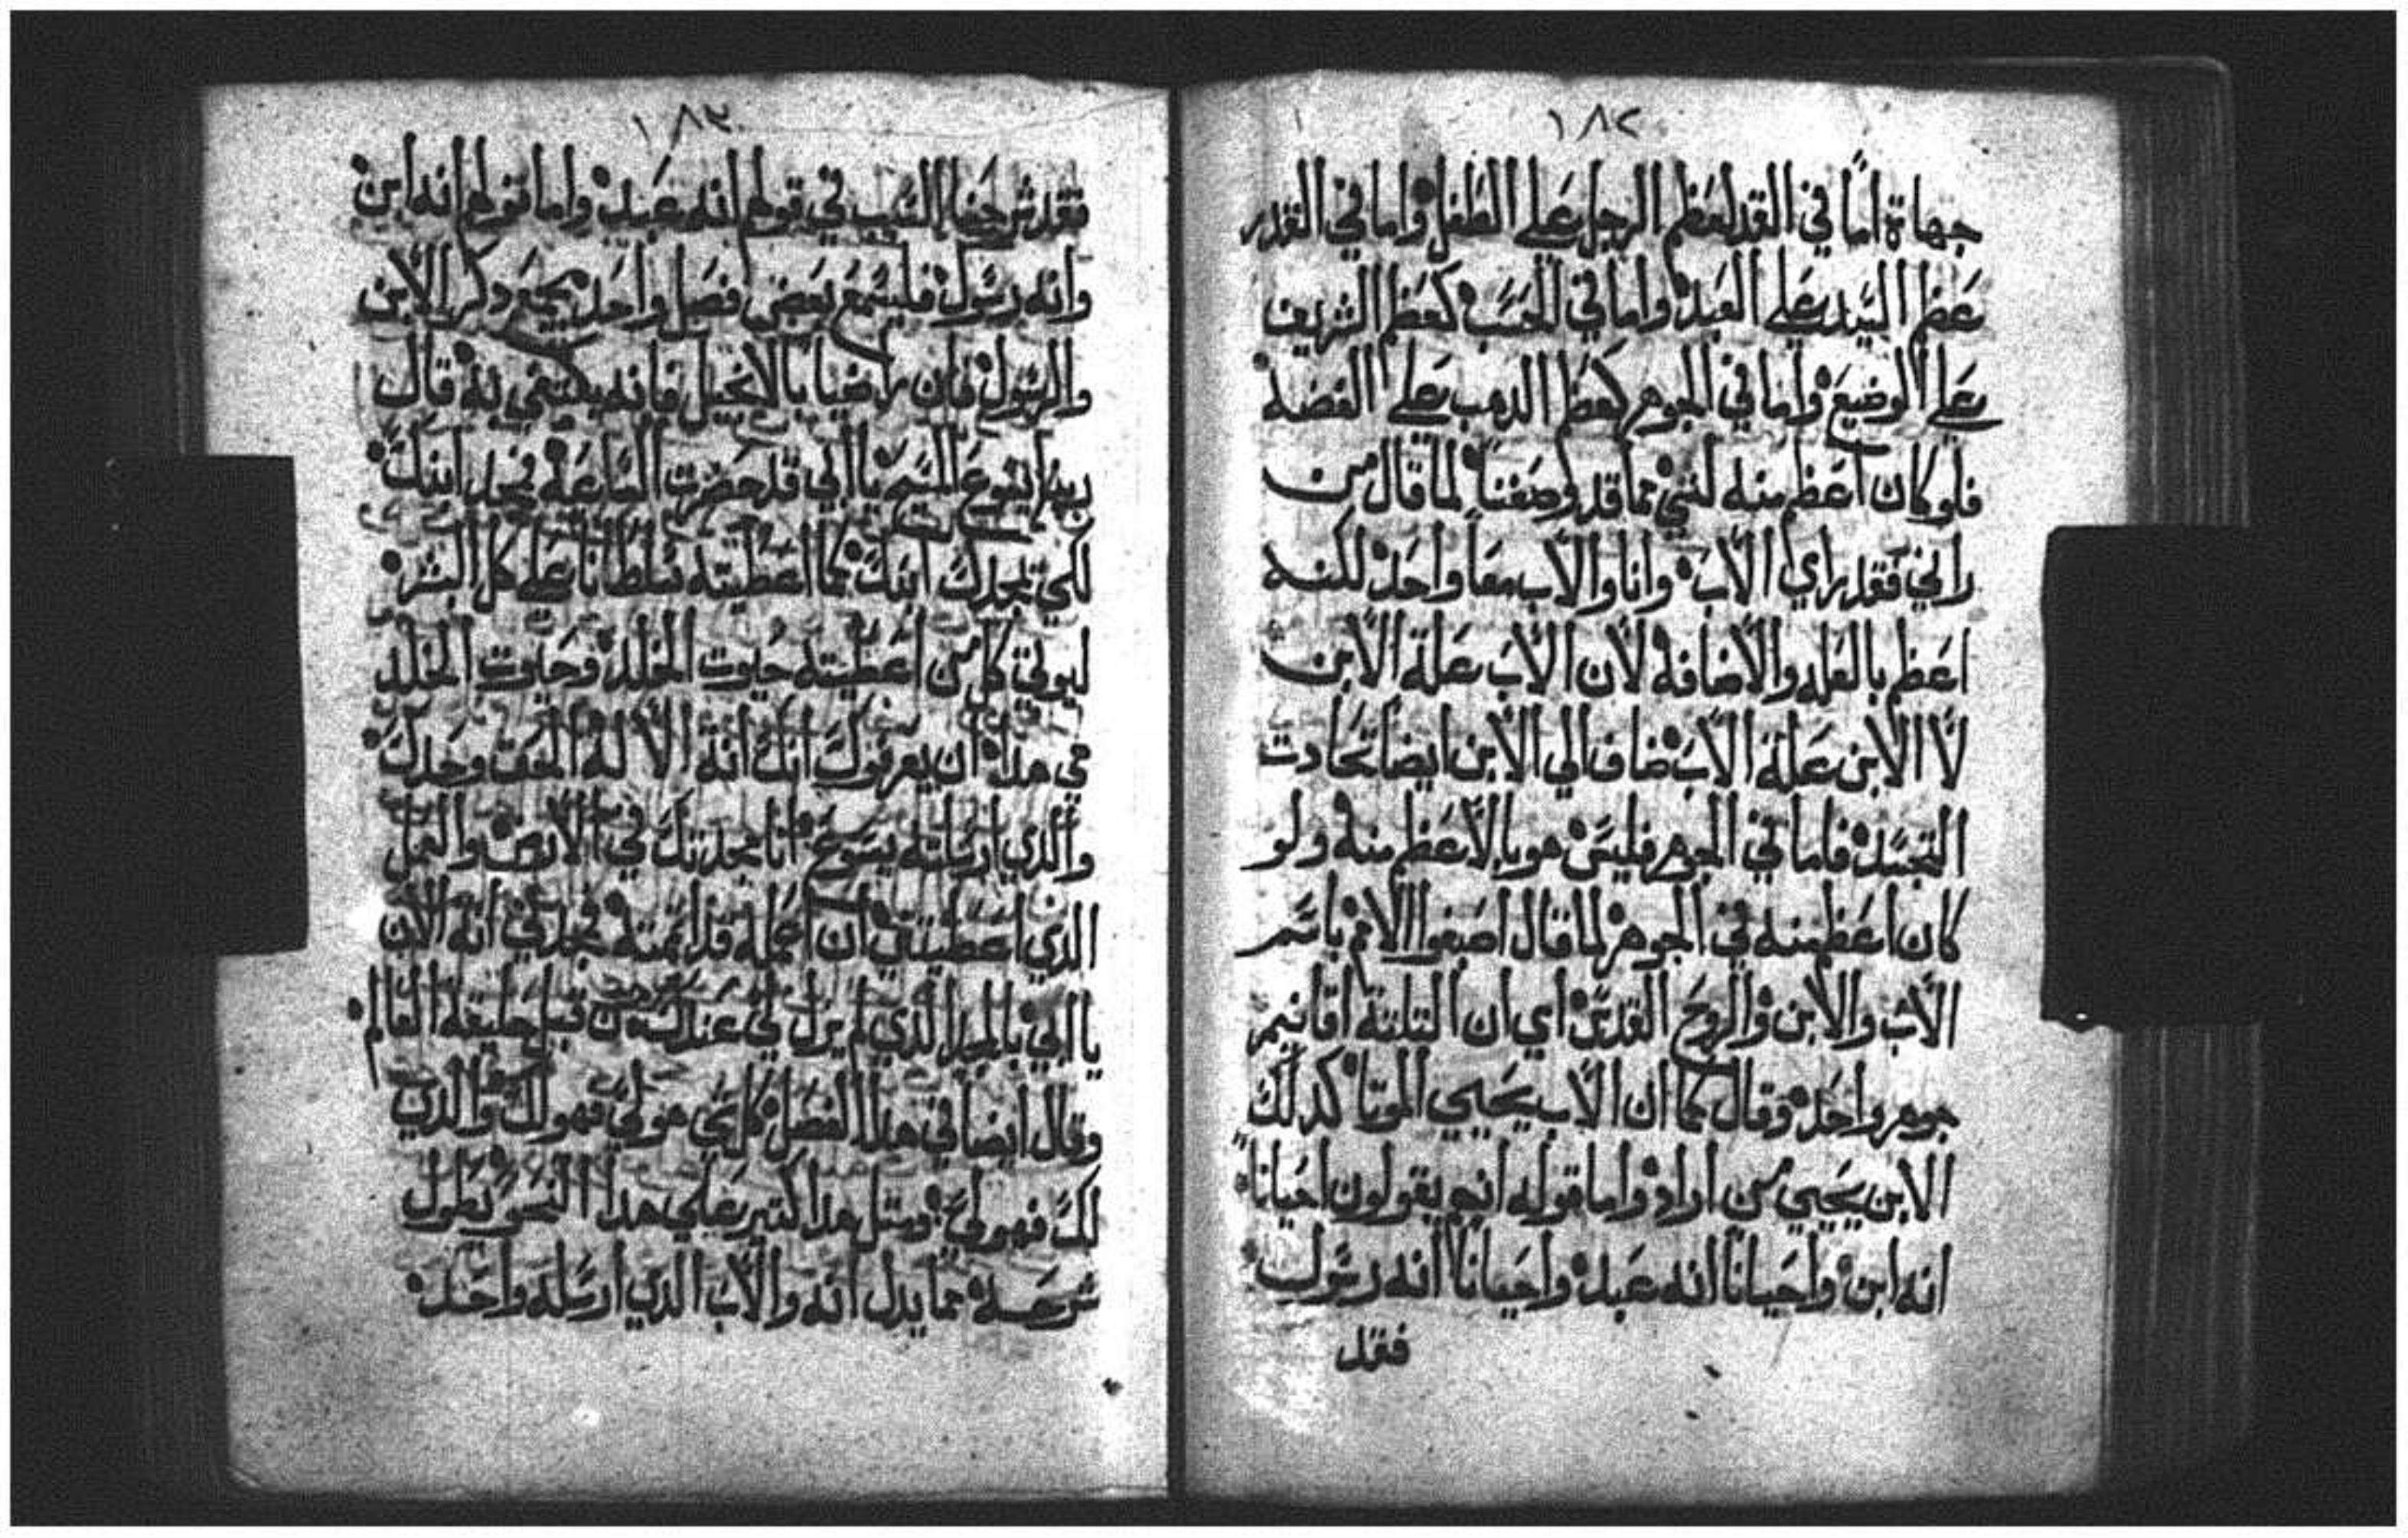 ١٨٢
جهاة اما في القد لعظم الرجل علي الطفل واما في القدر
عظم السيد علي العبد واما في الحسب كعظم الشريف
علي الوضيع واما في الجوهر كعظم الدهب علي الفضه
فلو كان اعظم منه لشي مما قد وضعنا لما قال من
راني فقد راي الاب وانا والاب معا واحد لكنه
اعظم بالعله والاضافه لان الاب علة الابن
لا الابن علة الاب مضاف الي الابن ايضا تحادت
التجسد فاما في الجوهر فليس هو بالاعظم منه ولو
كان اعظم منه في الجوهر لما قال اصبغوا الامم باسم
الاب والابن والروح القدس اي ان التلتة اقانيم
جوهر واحد وقال كما ان الاب يحيي الموتا كدلك
الابن يحيي من اراد واما قوله انهم يقولون احيانا
انه ابن واحيانا انه عبد واحيانا انه رسول
فقد
١٨٣
فقد شرحنا السبب في قولهم انه عبد واما قولهم انه ابن
وانه رسول فليسمع بعض فصل واحد يجمع دكر الابن
والرسول فان راضيا بالانجيل فانه يكتفي به قال
ربنا يسوع المسيح يا ابي قد حضرت الساعة فمجد ابنك
لكي يمجدك ابنك كما اعطيته سلطانا علي كل البشر
ليوتي كل من اعطيته حيوت الخلد وحيوت الخلد
هي هده ان يعرفوك انك انة الاله الحق وحدك
والدي ارسلته يسوع انا مجدتك في الارض والعمل
الدي اعطيتني ان اعمله قد اتممته فمجدني انه الان
يا ابي بالمجد الدي لم يزل لي عندك من قبل خليقة العالم
وقال ايضا في هدا الفصل كل شي هو لي فهو لك والدي
لك فهو لي ومتل هدا كتير علي هدا النحو يطول
شرحه مما يدل انه والاب الدي ارسله واحد